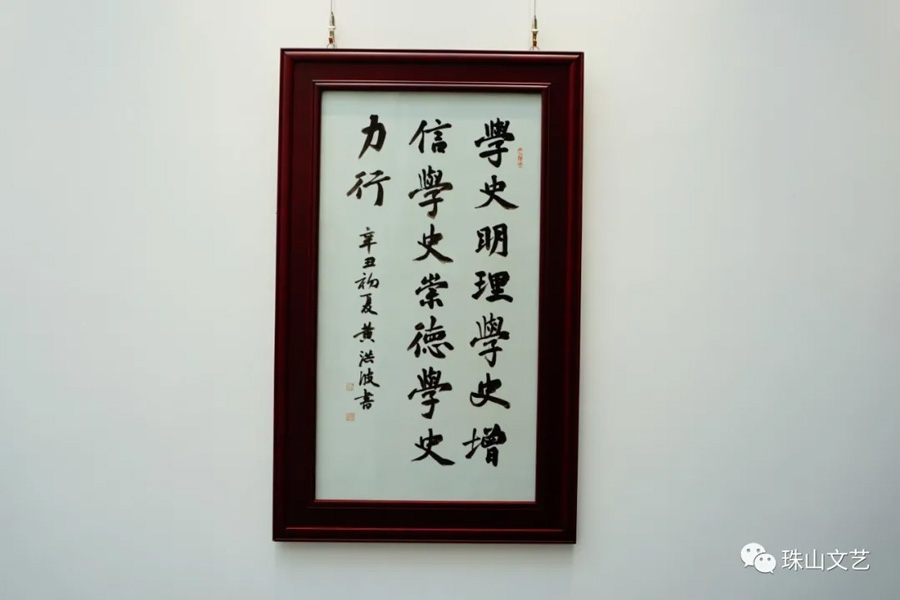 學史明理學史增
信學史崇德學史
力行
辛丑初夏黄洪波書
珠山文艺